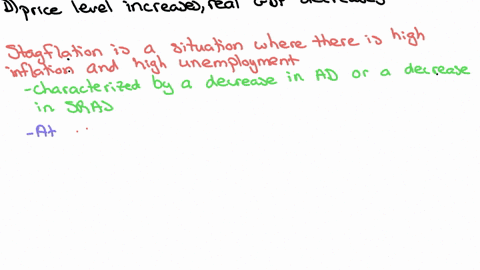 D) price level increases, real GDP decreases
Stagflation is a situation where there is high
inflation and high unemployment
-characterized by a decrease in AD or a decrease
in SRAS
-At